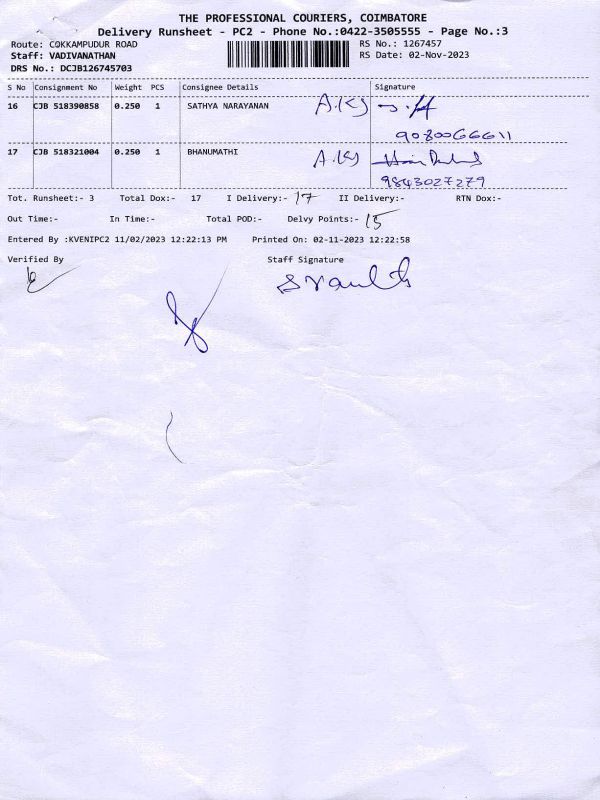 THE PROFESSIONAL COURIERS, COIMBATORE
Delivery Runsheet - PC2 - Phone No.:0422-3505555 - Page No.:3
Route: COKKAMPUDUR ROAD RS No.: 1267457
Staff: VADIVANATHAN RS Date: 02-Nov-2023
DRS No.: DCJB126745703
S No Consignment No Weight PCS Consignee Details Signature
16 CJB 518390858 0.250 1 SATHYA NARAYANAN
9080066611
17 CJB 518321004 0.250 1 BHANUMATHI
9843027279
Tot. Runsheet:- 3 Total Dox:- 17 I Delivery:- 17 II Delivery:- RTN Dox:-
Out Time:- In Time:- Total POD:- Delvy Points:- 15
Entered By :KVENIPC2 11/02/2023 12:22:13 PM Printed On: 02-11-2023 12:22:58
Verified By Staff Signature